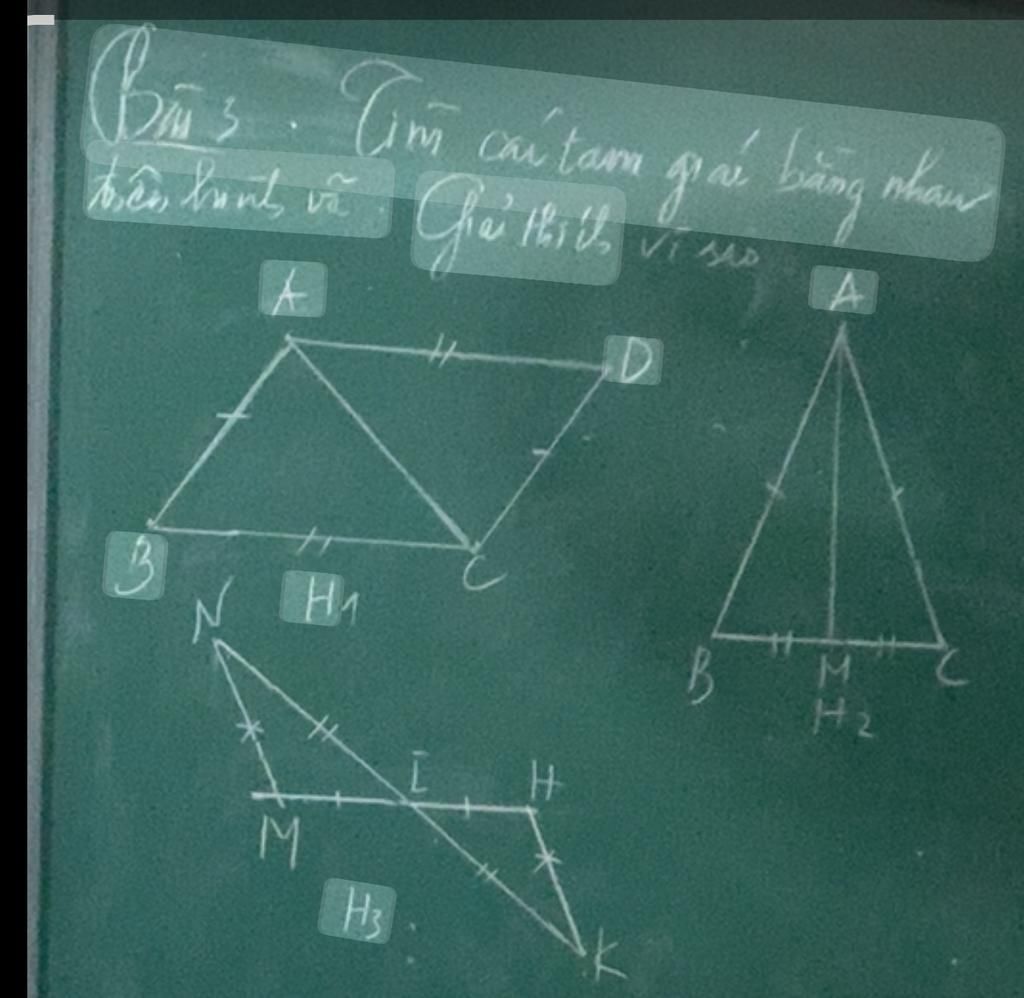 Bài 3. Tìm các tam giác bằng nhau
trên hình vẽ. Giải thích vì sao
A
D
B
C
H1
A
B
M
C
H2
N
I
H
M
K
H3